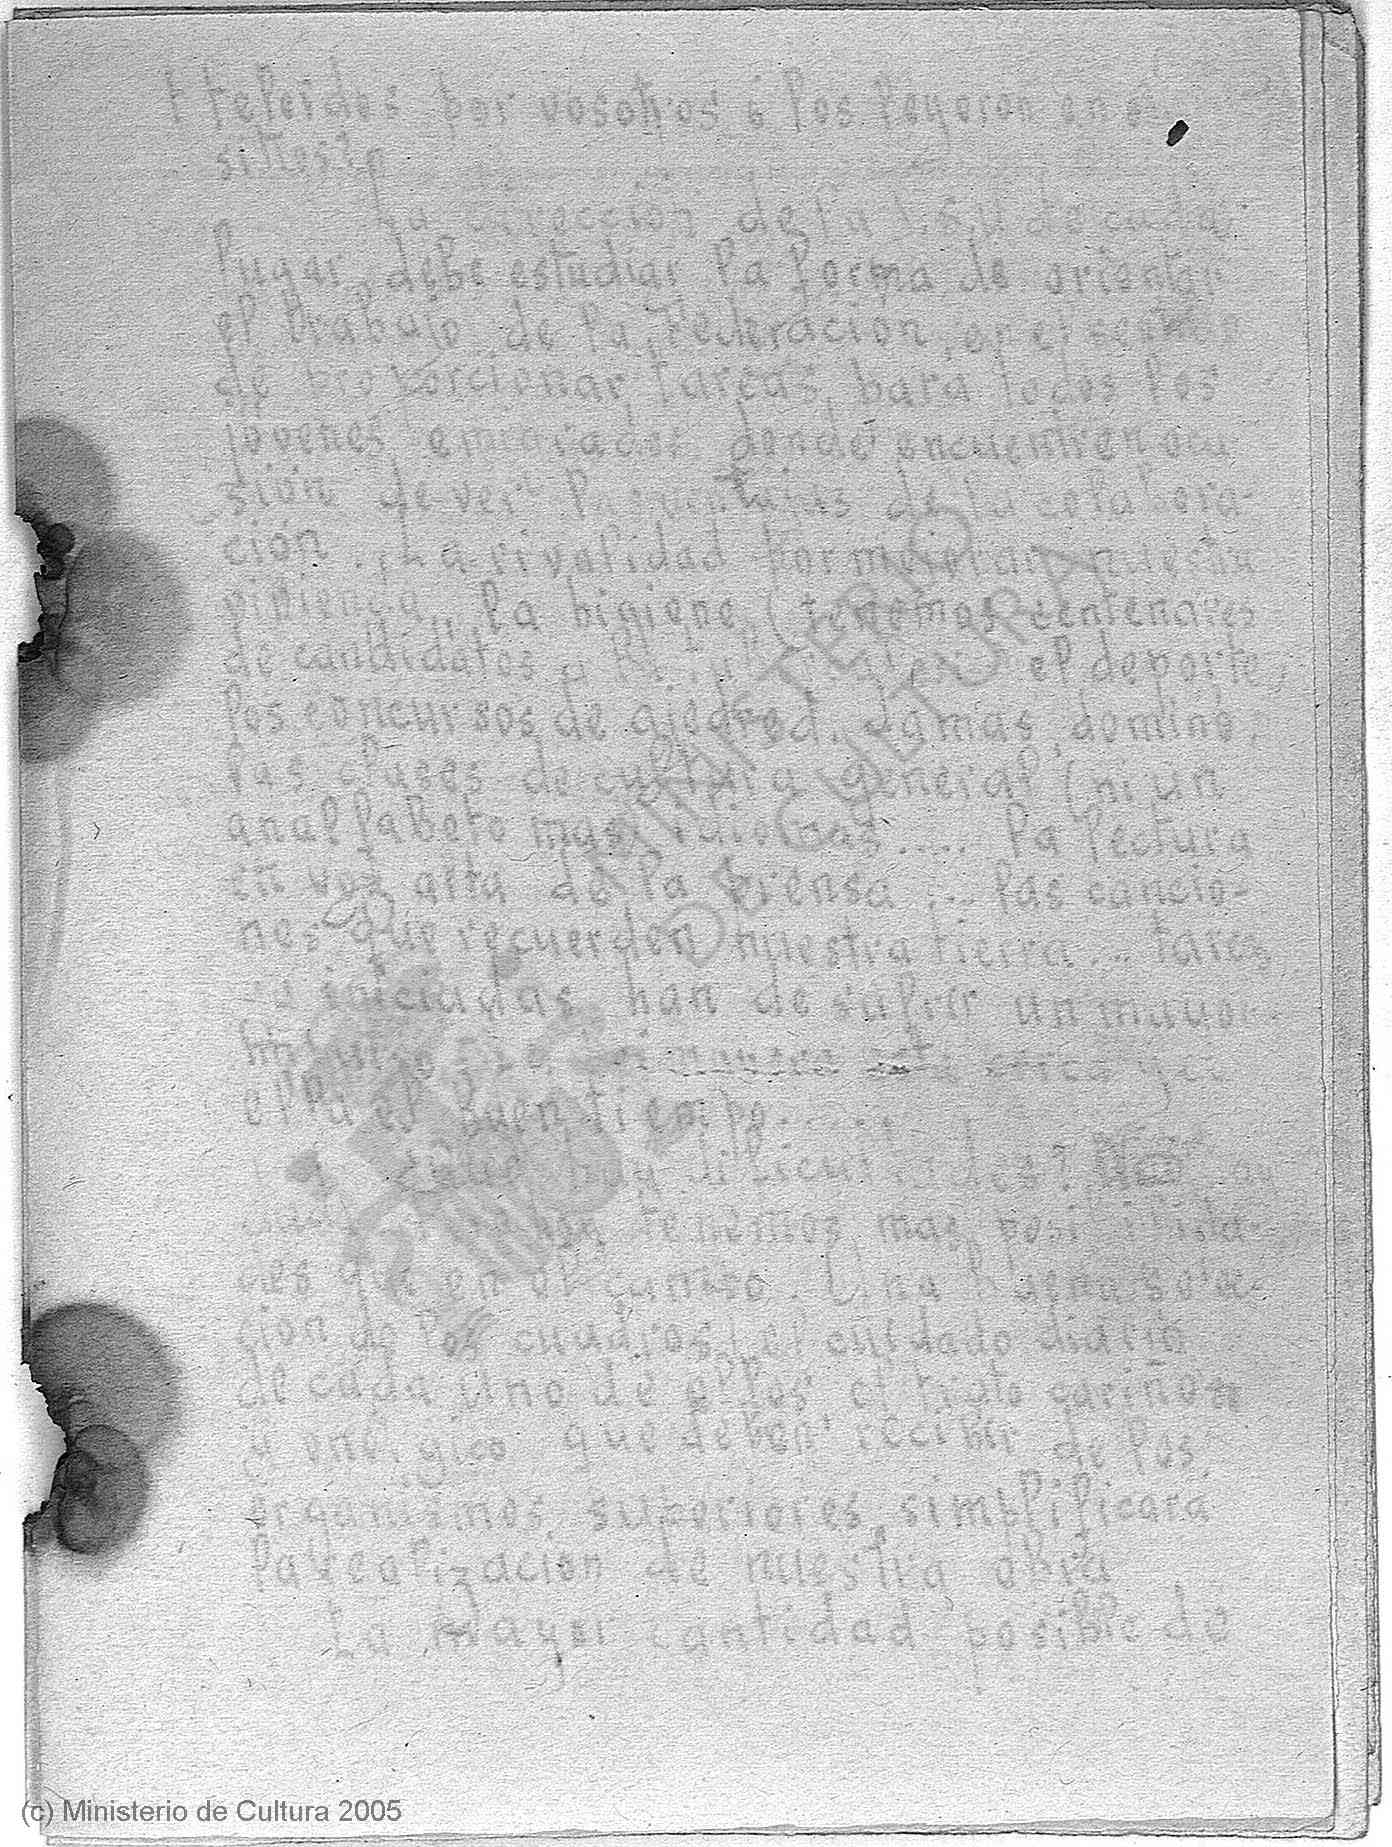 por vosotros o los leyeron en
La dirección de la J.S.U de cada
lugar, debe estudiar la forma de orientar
el trabajo de la Federación, en el sentido
de proporcionar tareas para todos los
jovenes emigrados donde encuentren oca-
sión de ver las ventajas de la colabora-
ción. La rivalidad por mejorar nuestra
vivienda, la higiene, (tenemos centenares
de candidatos a el deporte,
los concursos de ajedred, damas, domino,
las clases de cultura general (ni un
analfabeto mas) idiomas..... la lectura
en voz alta de la prensa .... las cancio-
nes que recuerden nuestra tierra... tareas
ya iniciadas han de sufrir un mayor
impulso
el buen tiempo......
hay dificultades?
tenemos mas posibilida-
des que en el campo. Una buena
ción de los cuadros, el cuidado diario
de cada uno de ellos el trato cariñoso
y energico que deben recibir de los
organismos superiores, simplificara
la realización de nuestra obra
La mayor cantidad posible de
MINISTERIO
DE CULTURA
(c) Ministerio de Cultura 2005